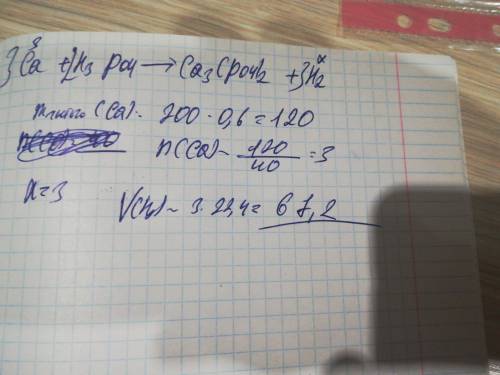 3 x
3Ca + 2H3PO4 → Ca3(PO4)2 + 3H2
(Ca) - 200 · 0,6 = 120
n(Ca) - 120/40 = 3
x = 3
V(H2) - 3 · 22,4 = 67,2